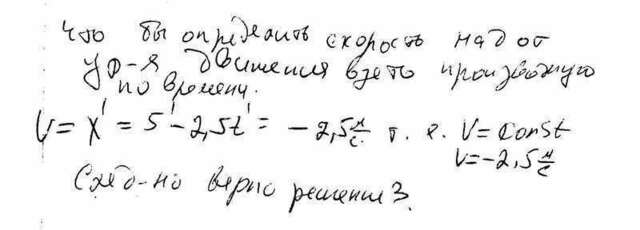 Что бы определить скорость надо от
ур-я движения взять производную
по времени.
V = X' = 5' - 2,5t' = - 2,5 м/с т. е. V = Const
V = -2,5 м/с
След-но верно решение 3.